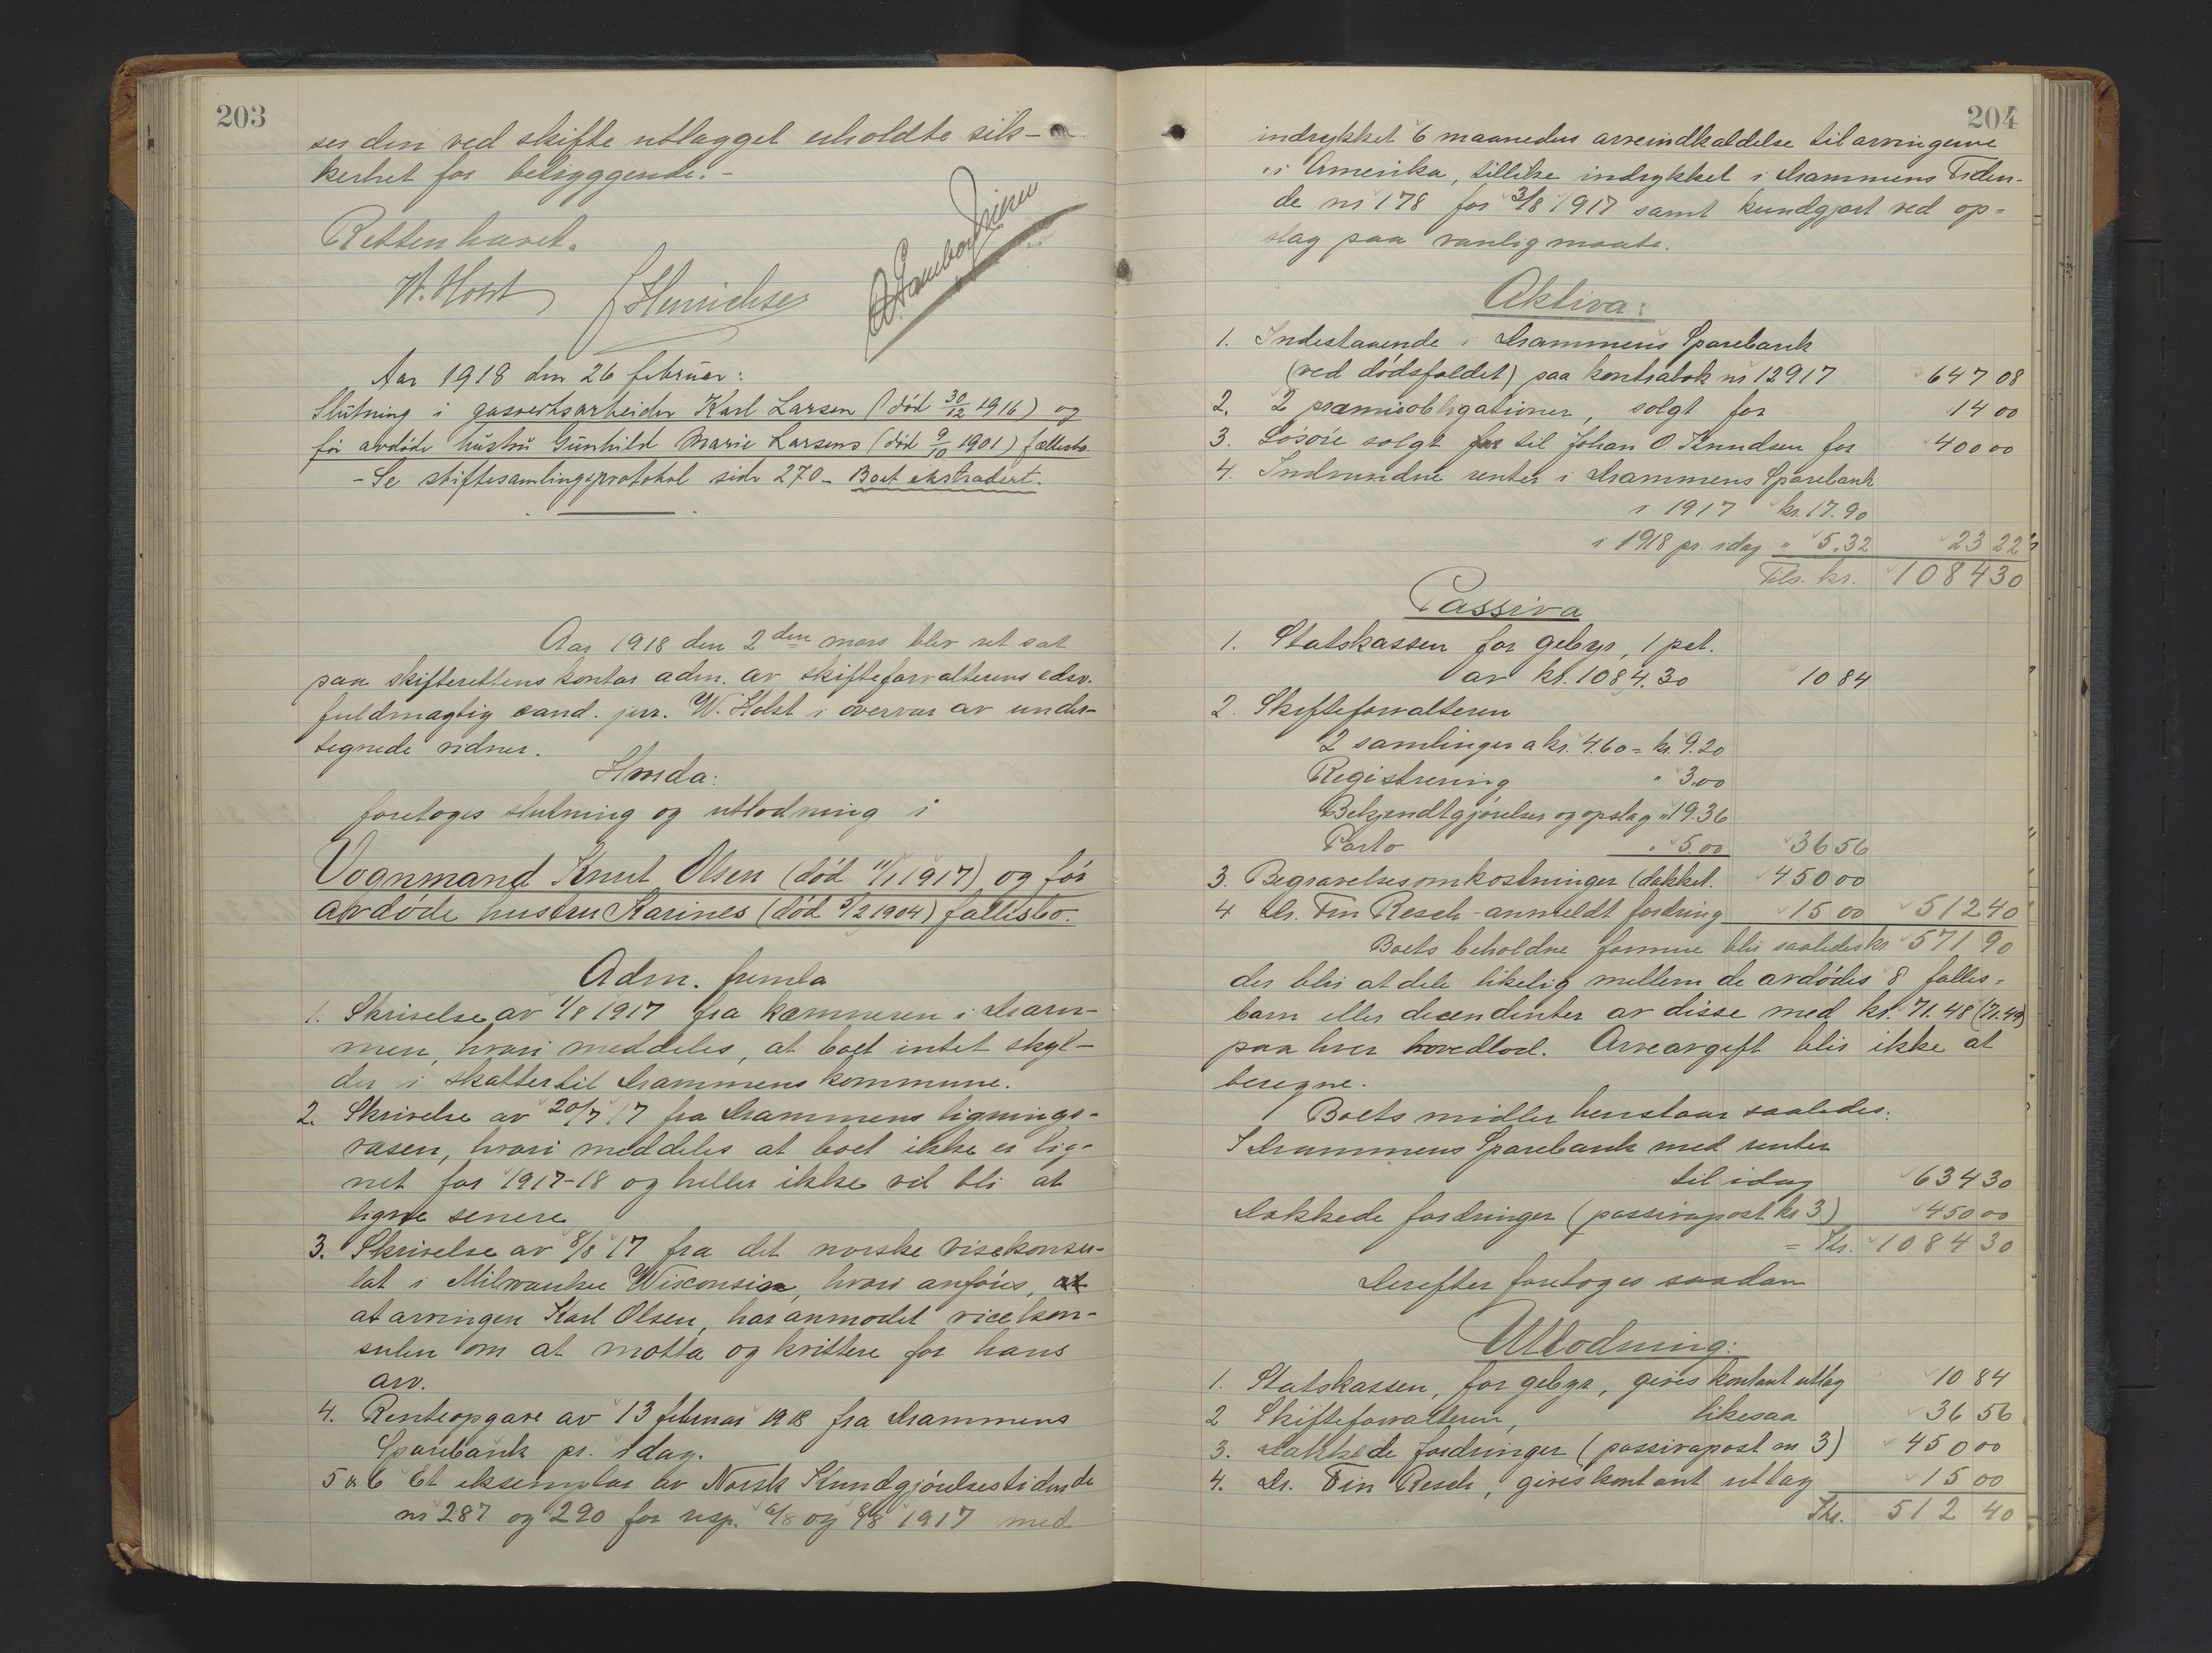 203
ser den ved skifte utlagget erholdte sik-
kerhet for betryggende.-
Retten hævet.
W. Holst J Henrichsen
Aar 1918 den 26 februar:
Slutning i gasverksarbeider Karl Larsen (død 30/12 1916) og
før avdøde hustru Gunhild Marie Larsens (død 9/10 1901) fællesbo.
- Se skiftesamlingsprotokol side 270 - Boet ekstradert.
Aar 1918 den 2den mars blev ret sat
paa skifterettens kontor adm. av skifteforvalterens edsv.
fuldmægtig cand. jur. W. Holst i overvær av under-
tegnede vidner.
Hvorda:
foretoges slutning og utlodning i
Vognmand Knut Olsen (død 11/1 1917) og før
avdøde hustru Karines (død 5/2 1904) fællesbo.
Adm. fremla
1. Skrivelse av 1/8 1917 fra kæmneren i Dram-
men, hvori meddeles, at boet intet skyl-
der i skatter til Drammens kommune.
2. Skrivelse av 20/7 17 fra Drammens lignings-
væsen, hvori meddeles at boet ikke er lig-
net for 1917-18 og heller ikke vil bli at
ligne senere
3. Skrivelse av 8/8 17 fra det norske visekonsu-
lat i Milwaukee Wisconsin, hvori anføres, at
at arvingen Karl Olsen, har anmodet vicekon-
sulen om at motta og kvittere for hans
arv.
4. Renteopgave av 13 februar 1918 fra Drammens
Sparebank pr. idag.
5 & 6 Et eksemplar av Norsk Kundgjørelsestidende
nr 287 og 290 for resp. 6/8 og 8/8 1917 med
204
indrykket 6 maaneders arveindkaldelse til arvingerne
i Amerika, tillike indrykket i Drammens Tiden-
de nr 178 for 3/8 1917 samt kundgjort ved op-
slag paa vanlig maate.
Aktiva:
1. Indestaaende i Drammens Sparebank
(ved dødsfaldet) paa kontrabok nr 12917 647 08
2. 2 præmieobligationer, solgt for 14 00
3. Løsøre solgt for til Johan O. Knudsen for 400 00
4. Indvundne renter i Drammens Sparebank
i 1917 kr. 17.90
i 1918 pr. idag " 5.32 23 22
Tils. kr. 1084.30
Passiva
1. Statskassen for gebyr, 1 pct.
av kr. 1084.30 10 84
2. Skifteforvalteren
2 samlinger a kr. 4.60 = kr. 9.20
Registrering " 3.00
Bekjendtgjørelser og opslag " 19.36
Porto " 5.00 36 56
3. Begravelsesomkostninger (dækket. 450 00
4 Dr. Fin Resch - anmeldt fordring 15 00 512 40
Boets beholdne formue blir saaledes kr. 571 90
der blir at dele likelig mellem de avdødes 8 fælles-
barn eller decendenter av disse med kr. 71.48 (71.49)
paa hver hovedlod. Arveavgift blir ikke at
beregne.
Boets midler henstaar saaledes:
I Drammens Sparebank med renter
til idag 634 30
Dækkede fordringer (passivapost nr 3) 450 00
= Tils. 1084 30
Derefter foretoges saadan
Utlodning:
1. Statskassen, for gebyr, gives kontant utlæg 10 84
2 Skifteforvalteren, likesaa 36 56
3. Dækkede fordringer (passivapost nr 3) 450 00
4. Dr. Fin Resch, gives kontant utlæg 15 00
Tils. 512 40